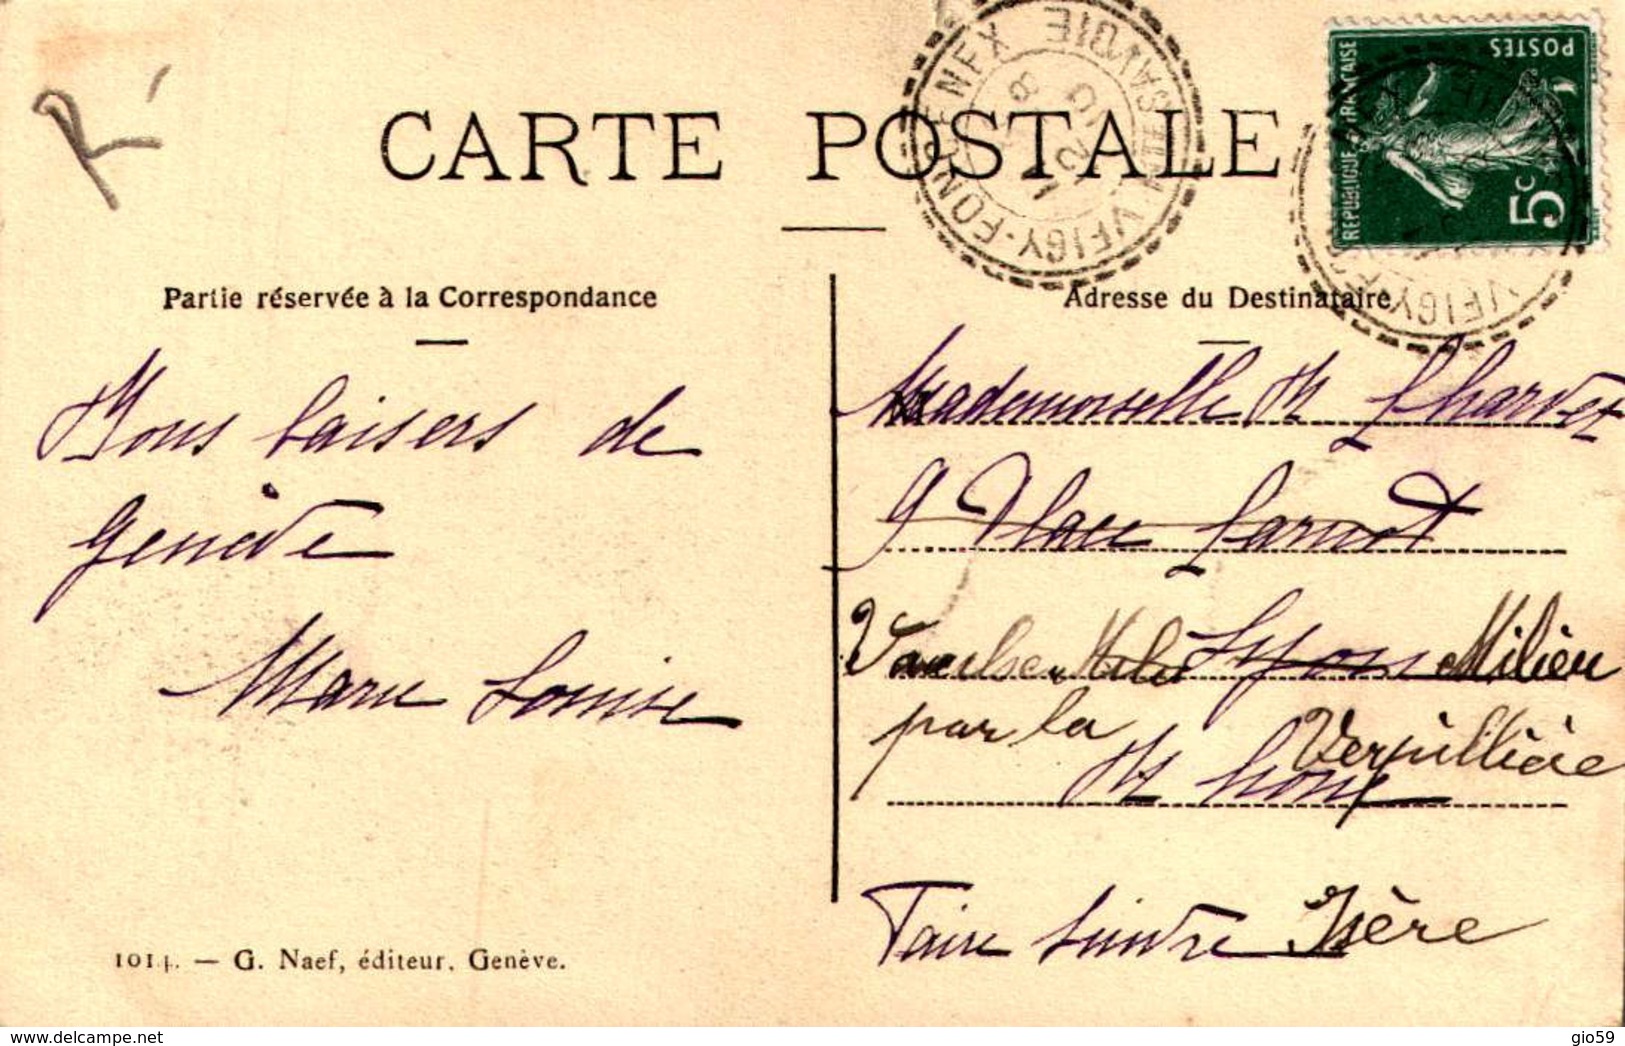 R
CARTE POSTALE
VEIGY-FONCENEX
HTE SAVOIE
REPUBLIQUE FRANÇAISE
POSTES
5c
Partie réservée à la Correspondance
Bons baisers de
Genève
Marie Louise
1014. — G. Naef, éditeur, Genève.
Adresse du Destinataire
Mademoiselle M Charvet
9 Place Carnot
Lyon Milieu
par la Verpillière
Rhone
Faire suivre Isère
gio59